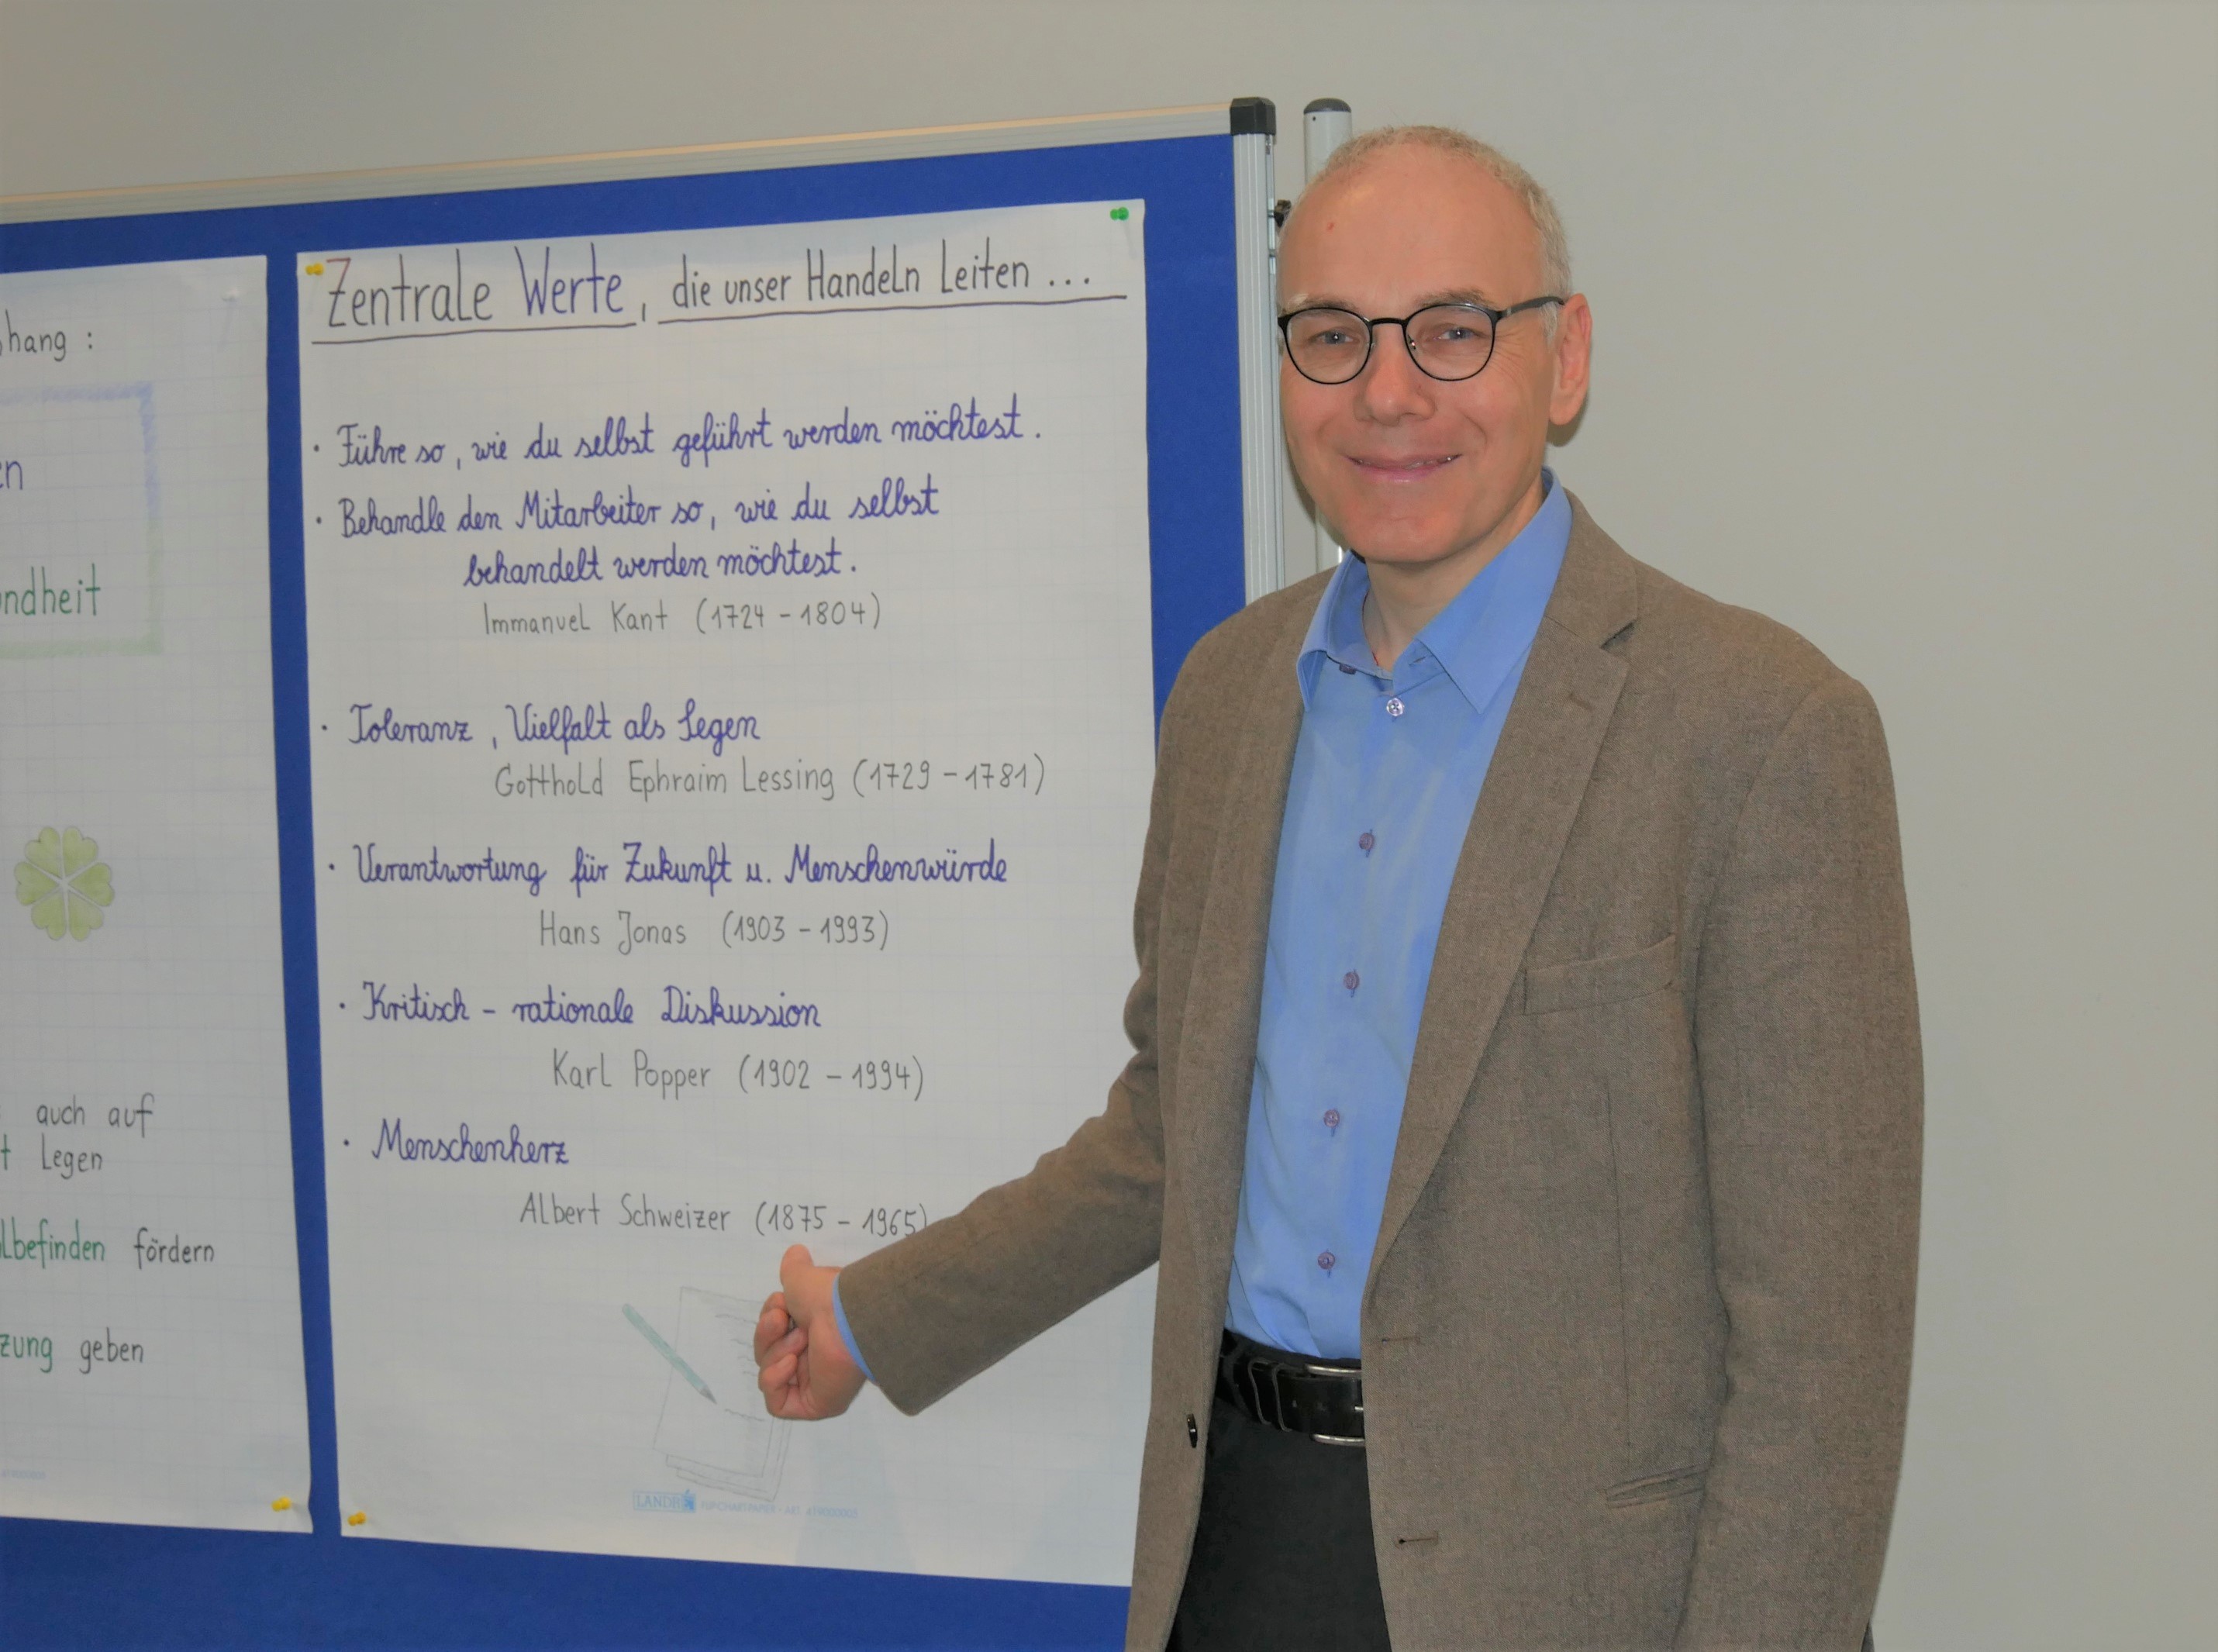 hang :
en
ndheit
auch auf
t legen
lbefinden fördern
zung geben
Zentrale Werte, die unser Handeln Leiten ...
· Führe so, wie du selbst geführt werden möchtest.
· Behandle den Mitarbeiter so, wie du selbst
behandelt werden möchtest.
Immanuel Kant (1724 - 1804)
· Toleranz, Vielfalt als Segen
Gotthold Ephraim Lessing (1729 - 1781)
· Verantwortung für Zukunft u. Menschenwürde
Hans Jonas (1903 - 1993)
· Kritisch - rationale Diskussion
Karl Popper (1902 - 1994)
· Menschenherz
Albert Schweizer (1875 - 1965)
LANDRÉ FLIPCHARTPAPIER - ART.